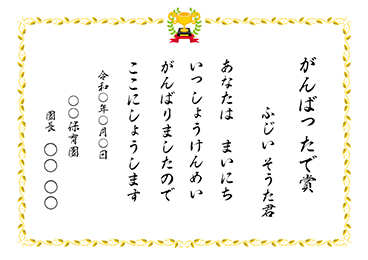 がんばったで賞
ふじい そうた君
あなたは まいにち
いっしょうけんめい
がんばりましたので
ここにしょうします
令和〇年〇月〇日
〇〇保育園
園長 〇〇 〇〇